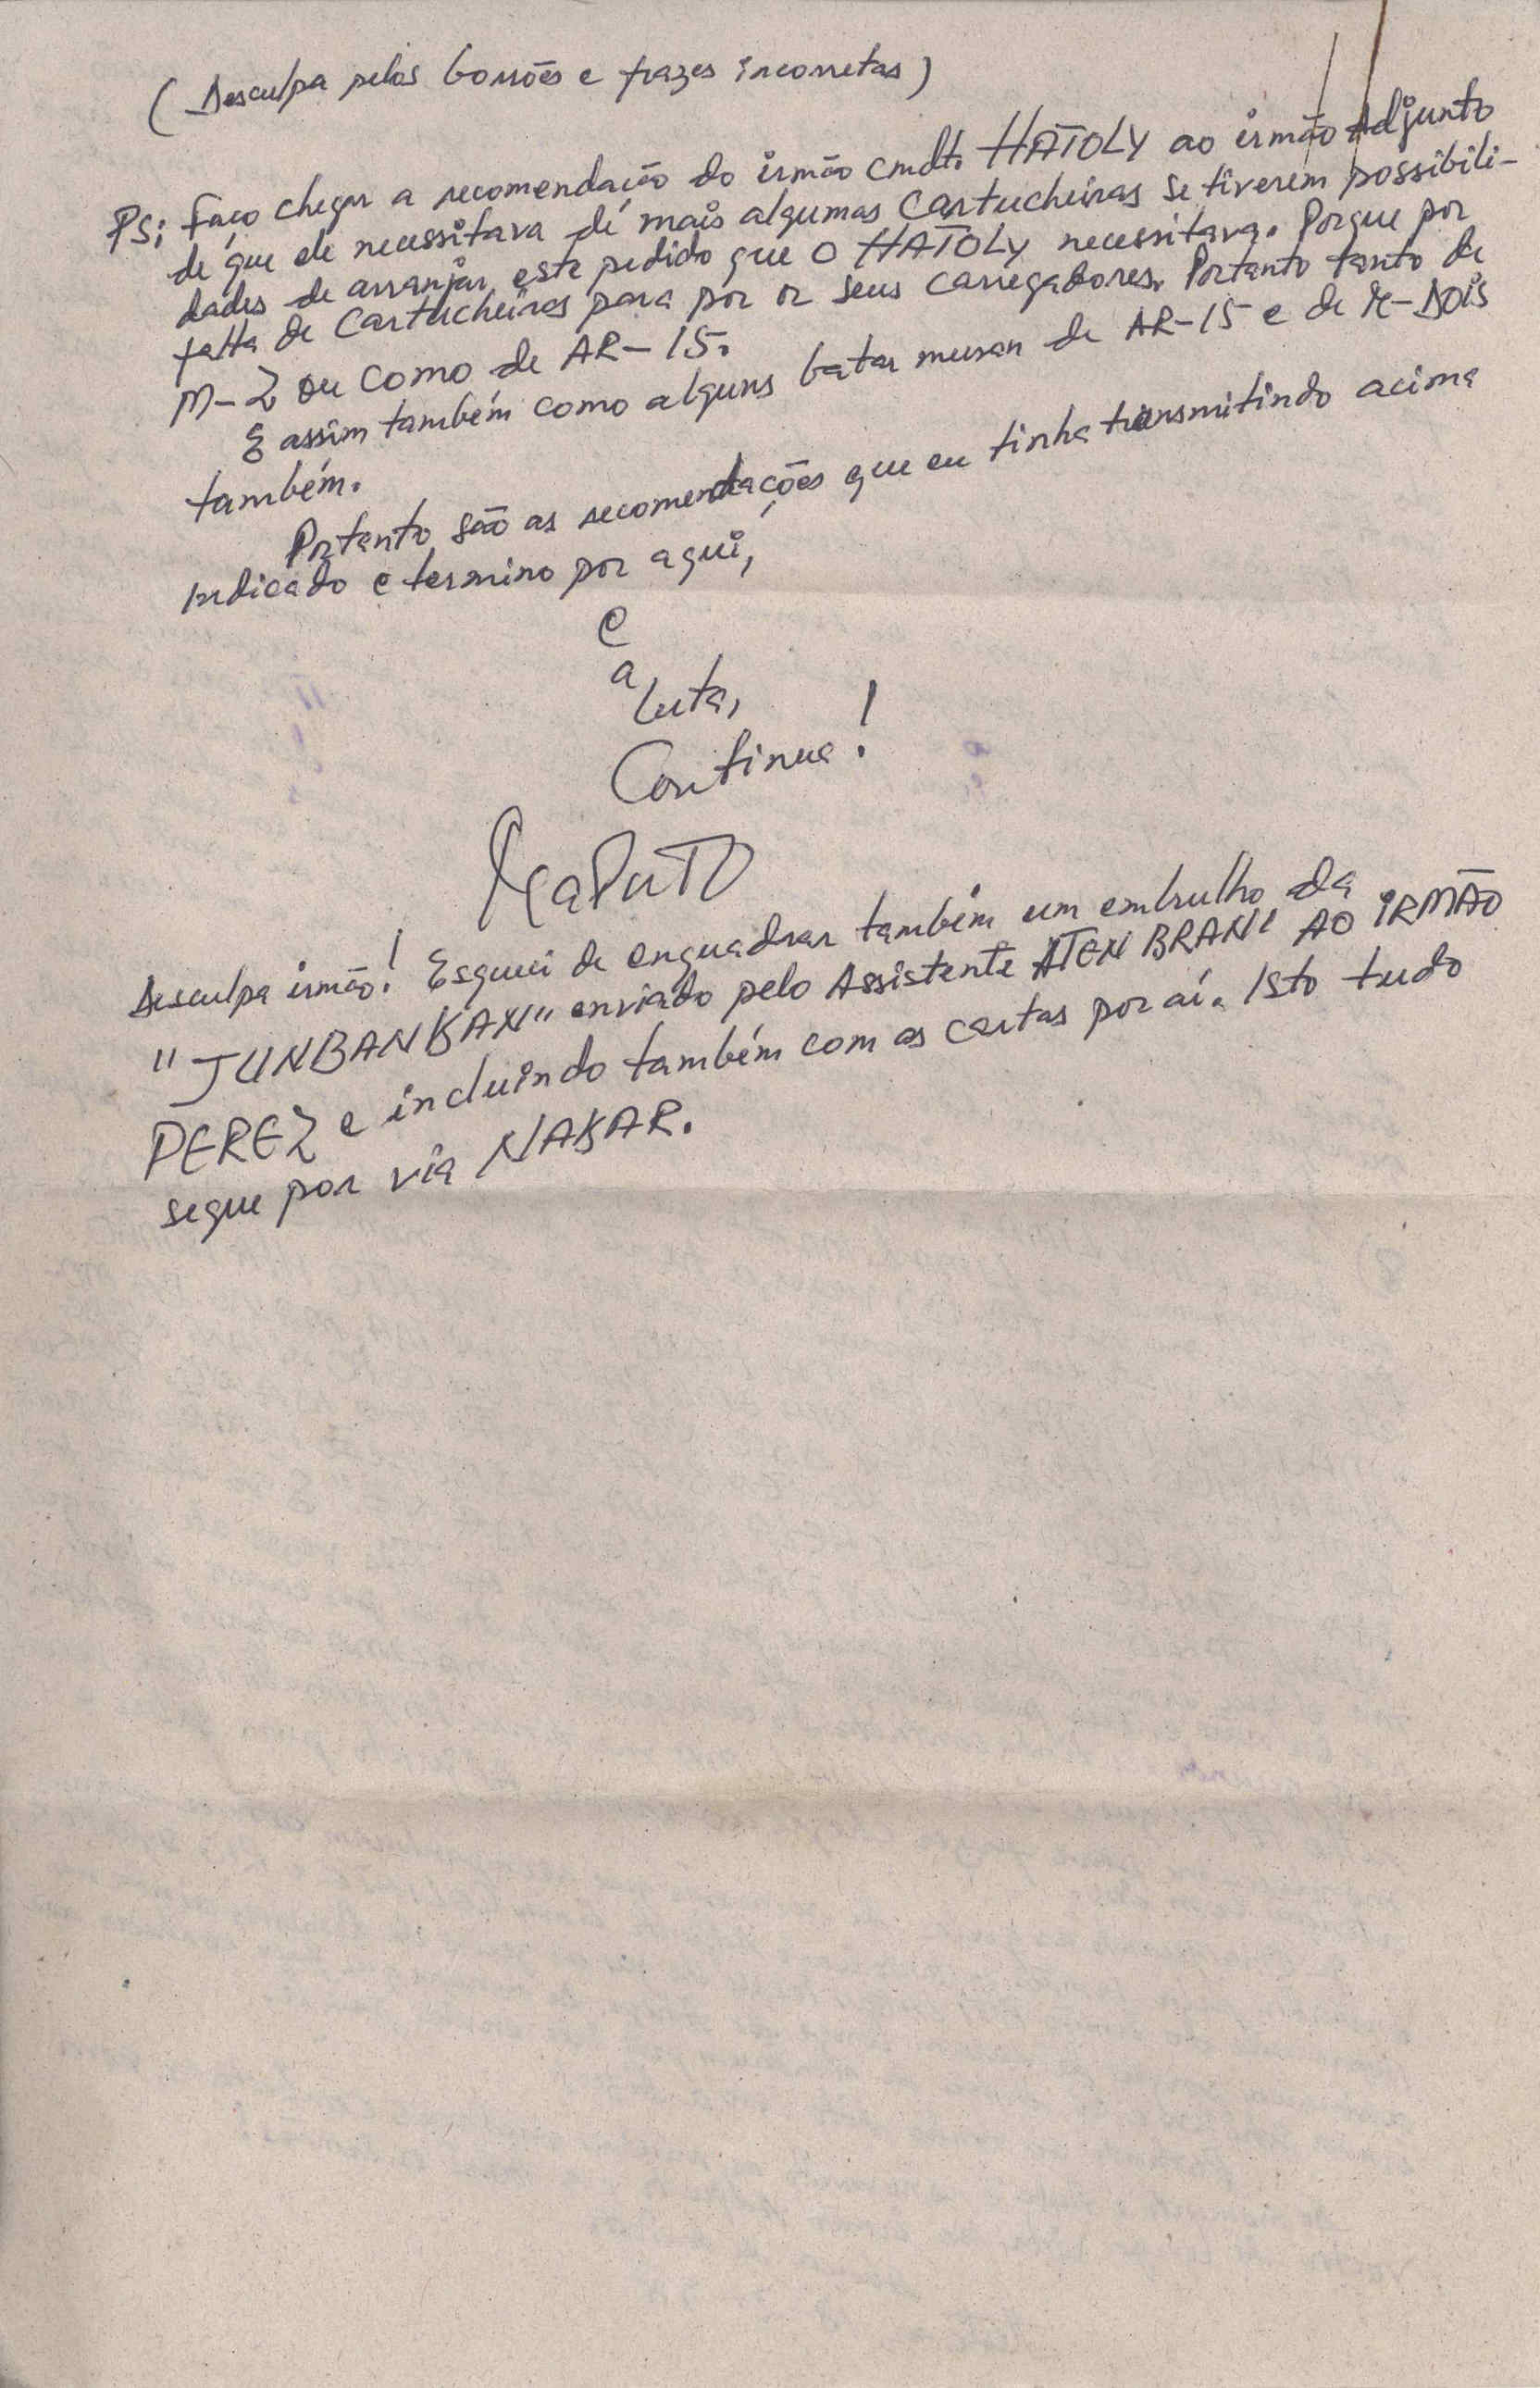 (Desculpa pelos borrões e frazes incorretas)
PS: Faço chegar a recomendação do irmão cmdt. HATOLY ao irmão Adjunto
de que ele necessitava de mais algumas Cartucheiras se tiverem possibili-
dades de arranjar este pedido que o HATOLY necessitava. Porque por
falta de Cartucheiras para por os seus carregadores. Portanto tanto de
M-2 ou como de AR-15.
E assim também como alguns batar musan de AR-15 e de M-DOIS
também.
Portanto são as recomendações que eu tinha transmitindo acima
indicado e termino por aqui,
e
a
luta,
Continua!
MAPUTO
Desculpa irmão! Esqueci de enquadrar também um embrulho da
"JUNBANKAN" enviado pelo Assistente ATEN BRANI AO IRMÃO
PEREZ e incluindo também com as cartas por aí. Isto tudo
segue por via NAKAR.